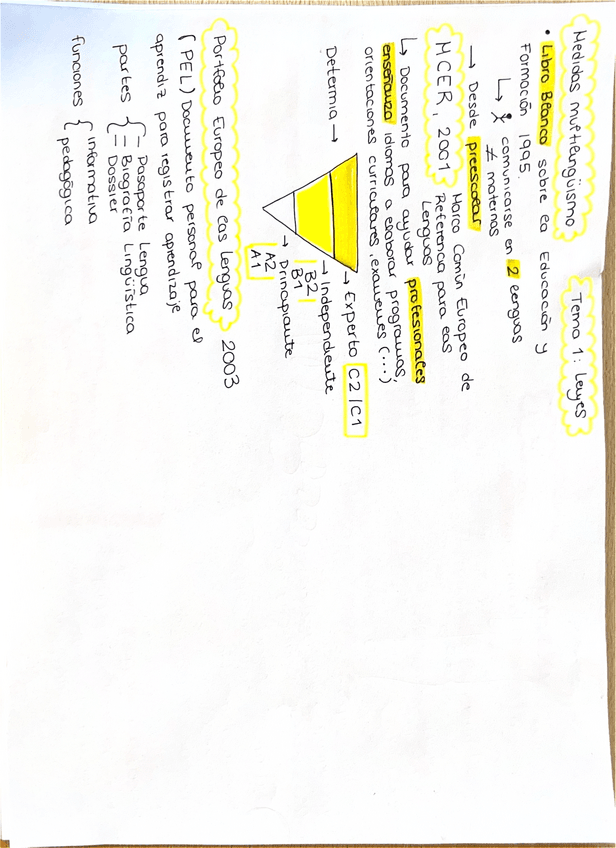 Medidas multilingüismo
Tema 1: Leyes
• Libro Blanco sobre la Educación y
Formación 1995.
↳ comunicarse en 2 lenguas
≠ maternas
→ Desde preescolar
MCER, 2001
Marco Común Europeo de
Referencia para las
Lenguas
↳ Documento para ayudar profesionales
enseñanza idiomas a elaborar programas,
orientaciones curriculares, exámenes (...)
Determia →
→ Experto C2/C1
→ Independiente
B2
B1
→ Principiante
A2
A1
Portfolio Europeo de las Lenguas, 2003
(PEL) Documento personal para el
aprendiz para registrar aprendizaje
partes { - Pasaporte Lengua
- Biografía Lingüística
- Dossier
funciones { informativa
pedagógica